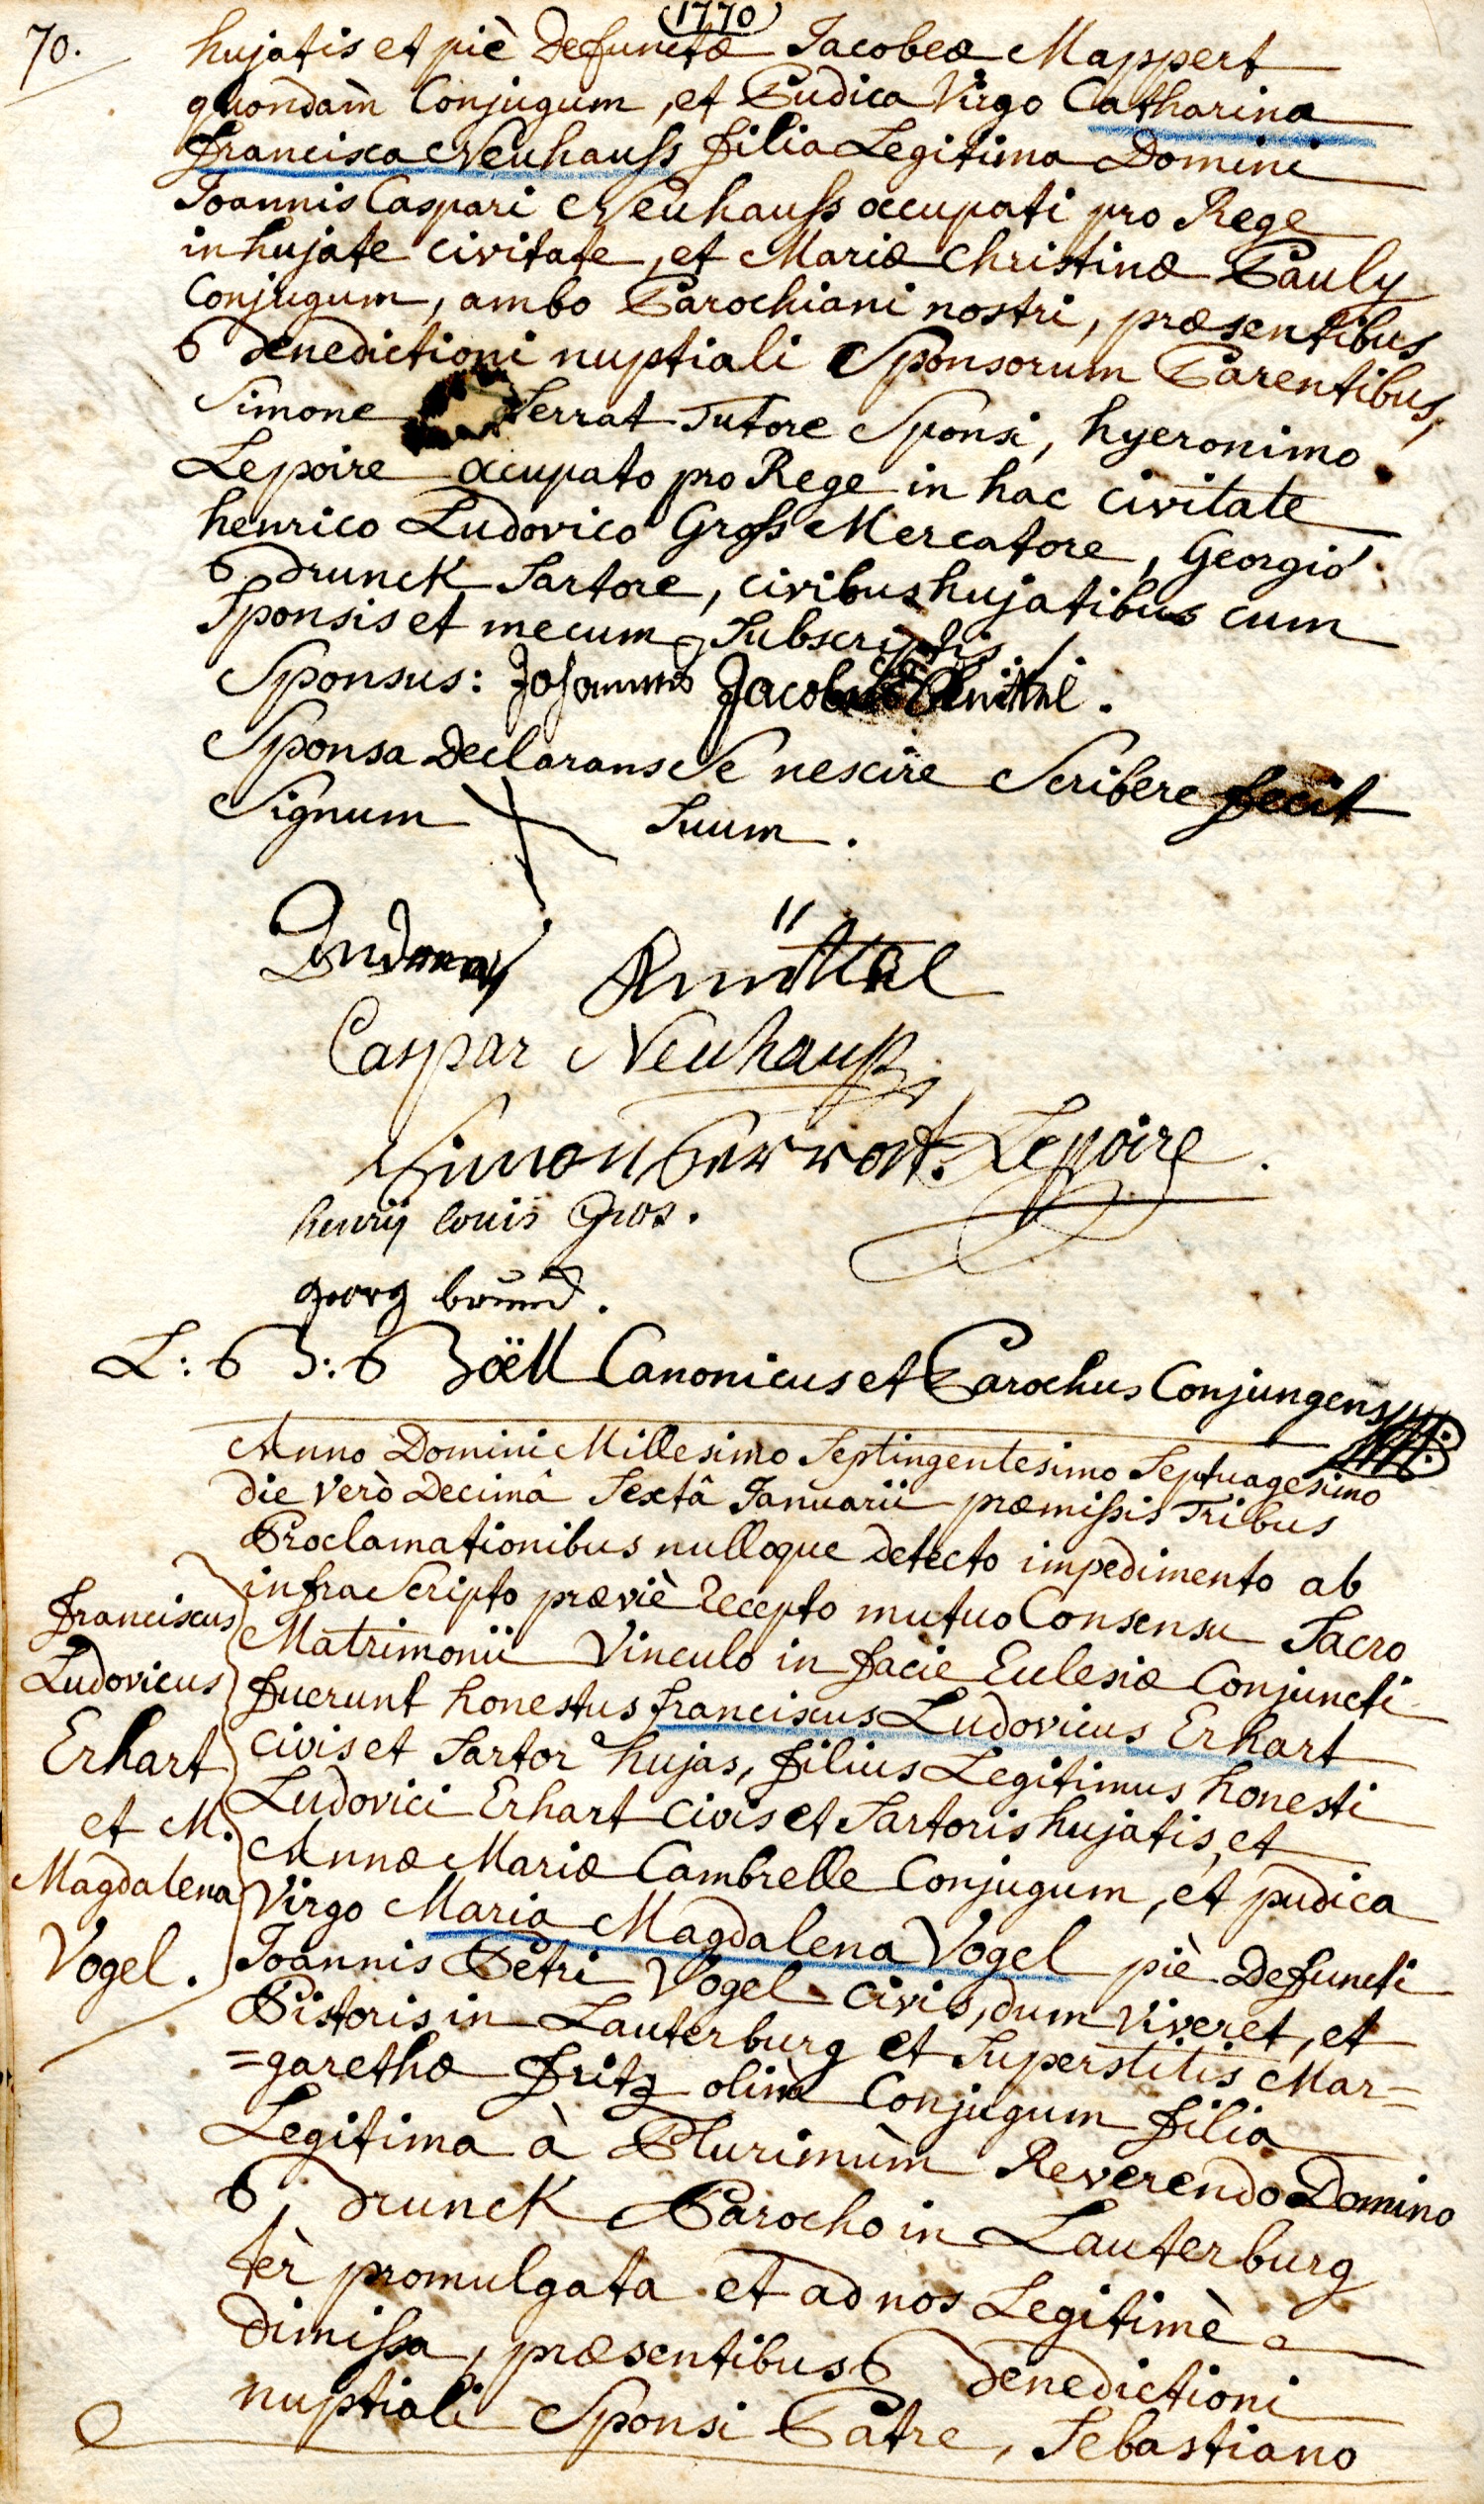 (1770)
70.
hujatis et piè Defunctæ Jacobeæ Mappert
quondam Conjugum, et Pudica Virgo Catharina
Francisca Neuhauss filia Legitima Domini
Joannis Caspari Neuhauss occupati pro Rege
in hujate civitate, et Mariæ Christinæ Pauly
Conjugum, ambo Parochiani nostri, præsentibus
Benedictioni nuptiali Sponsorum Parentibus,
Simone Serrat Tutore Sponsi, hyeronimo
Lepoire occupato pro Rege in hac civitate
henrico Ludovico Gross Mercatore, Georgio
Brunck Sartore, civibus hujatibus cum
Sponsis et mecum Subscriptis ./.
Sponsus: Johannes Jacob
Sponsa Declarans Se nescire Scribere fecit
Signum Suum.
Andreas Knittel
Caspar Neuhauß
Simon Serrat. Lepoire.
henrÿ louis Gros.
georg brunck.
L: B: Zoëll Canonicus et Parochus Conjungens
Anno Domini Millesimo Septingentesimo Septuagesimo
die verò Decimâ Sextâ Januarii præmissis Tribus
Proclamationibus nulloque detecto impedimento ab
infra Scripto præviè recepto mutuo Consensu Sacro
Matrimonii Vinculo in facie Eclesiæ Conjuncti
fuerunt honestus franciscus Ludovicus Erhart
Civis et Sartor hujas, filius Legitimus honesti
Ludovici Erhart Civis et Sartoris hujatis, et
Annæ Mariæ Cambrelle Conjugum, et pudica
Virgo Maria Magdalena Vogel piè Defuncti
Joannis Petri Vogel Civis, dum Viveret, et
Pistoris in Lauterburg et Superstitis Mar=
=garethæ Fritz olim Conjugum filia
Legitima à Plurimùm Reverendo Domino
Brunck Parocho in Lauterburg
tèr promulgata et ad nos Legitimè
dimissa, præsentibus Benedictioni
nuptiali Sponsi Patre, Sebastiano
Franciscus
Ludovicus
Erhart
et M.
Magdalena
Vogel.